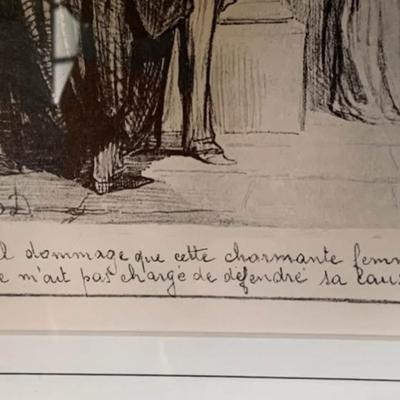 l dommage que cette charmante femm
e m'ait pas chargé de défendre sa caus